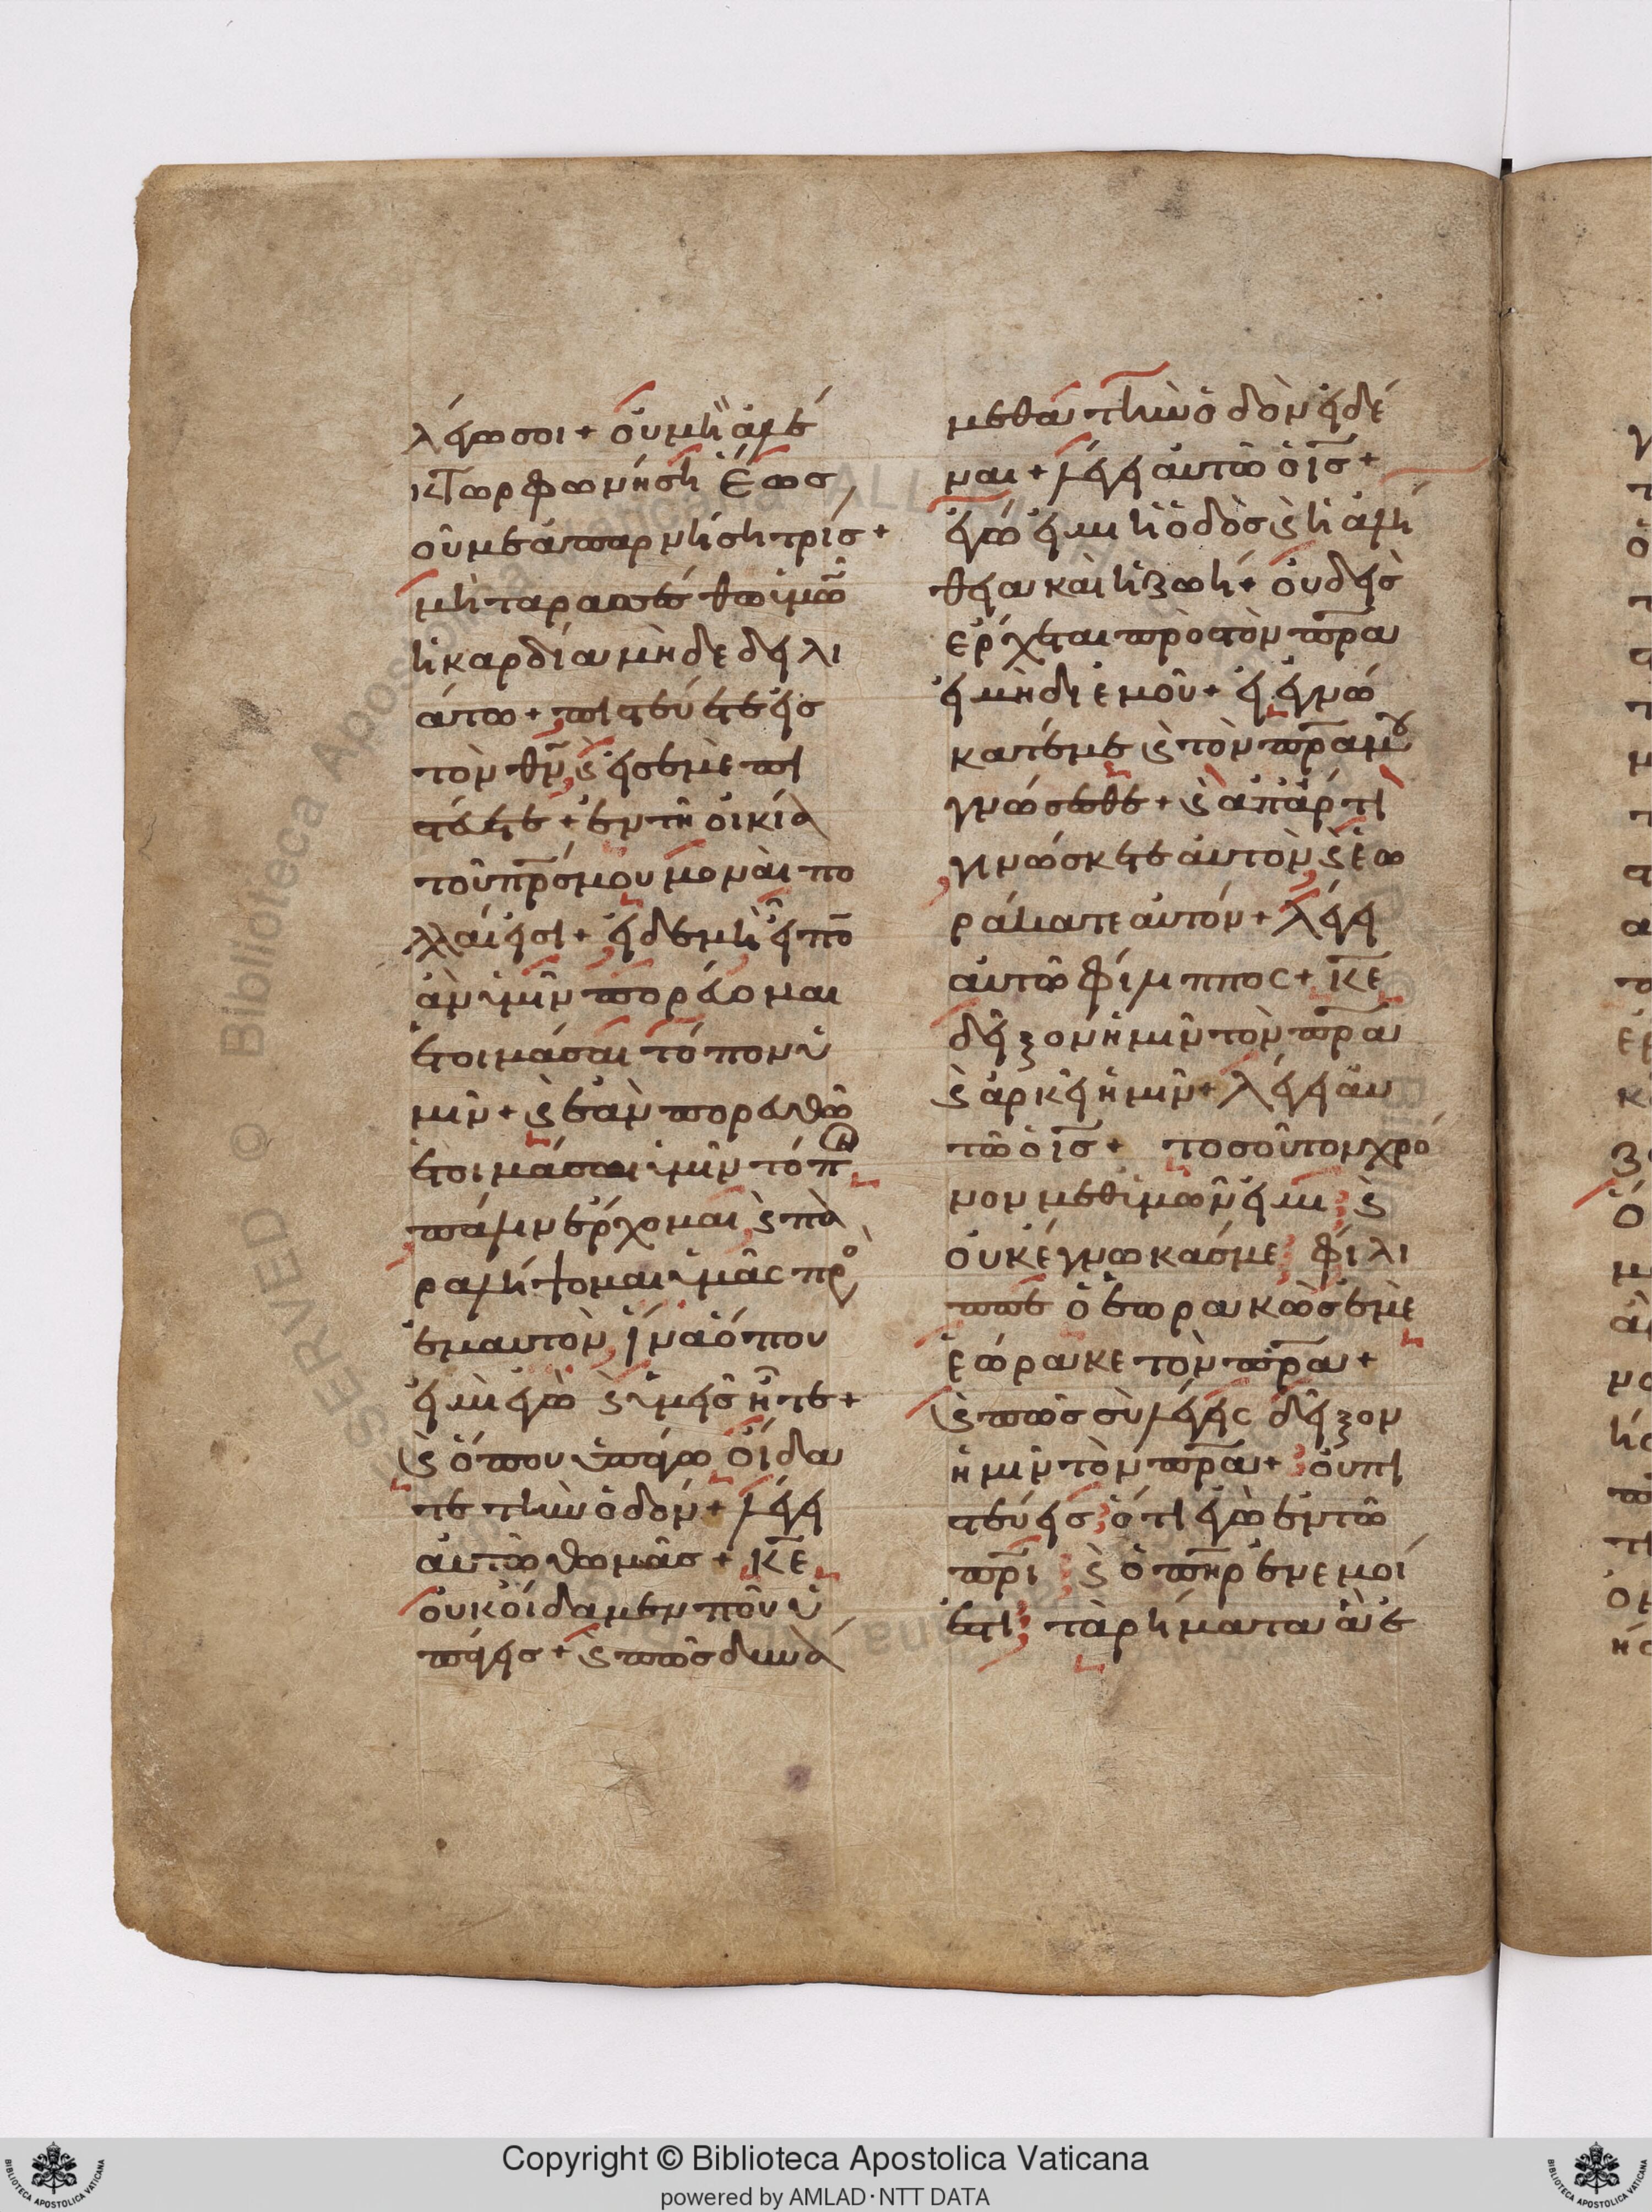 λέγω σοι + οὐ μὴ ἀλέ
κτωρ φωνήση ἕως
οὗ με ἀπαρνήση τρίς +
μὴ ταρασσέσθω ὑμῶν
ἡ καρδία μὴδὲ δειλι
άτω + πιστεύετε εἰς
τὸν θν̄ ϛ εἰς ἐμὲ πι
στεύετε + ἐν τῆ οἰκία
τοῦ πρ̄ς μου μοναὶ πο
λλαί εἰσι + εἰ δὲ μὴ εἶπο
ἂν ὑμῖν πορεύομαι
ἑτοιμάσαι τόπον ὑ
μῖν + ϛ ἐὰν πορευθῶ
ἑτοιμάσαι ὑμῖν τόπ
πάλιν ἔρχομαι ϛ πα
ραλήψομαι ὑμᾶς πρ
ἐμαυτὸν, ἵνα ὅπου
εἰμὶ ἐγὼ ϛ ὑμεῖς ἦτε +
ϛ ὅπου ὑπάγω οἴδα
τε τὴν ὁδόν + λέγει
αὐτῶ θωμᾶς + κ̄ε
οὐκ οἴδαμεν ποῦ ὑ
πάγεις + ϛ πῶς δυνά
μεθα τὴν ὁδὸν εἰδέ
ναι + λέγει αὐτῶ ὁ ῑς +
ἐγώ εἰμι ἡ ὁδὸς ϛ ἡ ἀλή
θεια καὶ ἡ ζωή + οὐδεὶς
ἔρχεται πρὸς τὸν πρ̄α
εἰ μὴ δι ἐμοῦ + εἰ ἐγνώ
κατέ με ϛ τὸν πρ̄α μου
γνώσεσθε + ϛ ἀπάρτι
γινώσκετε αὐτὸν, ϛ ἑω
ράκατε αὐτόν + λέγει
αὐτῶ φίλιππος + κ̄ε
δεῖξον ἡμῖν τὸν πρ̄α
ϛ ἀρκεῖ ἡμῖν + λέγει αὐ
τῶ ὁ ῑς + τοσοῦτον χρό
νον μεθ ὑμῶν εἰμι ϛ
οὐκ ἔγνωκάς με φίλι
ππε ὁ ἑωρακὼς ἐμὲ
ἑώρακε τὸν πρ̄α +
ϛ πῶς σὺ λέγεις δεῖξον
ἡμῖν τὸν πρ̄α + οὐ πι
στεύεις, ὅτι ἐγὼ ἐν τῶ
πρ̄ι ϛ ὁ πη̄ρ ἐν ἐμοί
ἐστι, τὰ ρήματα ἃ ἐ
Copyright © Biblioteca Apostolica Vaticana
powered by AMLAD·NTT DATA